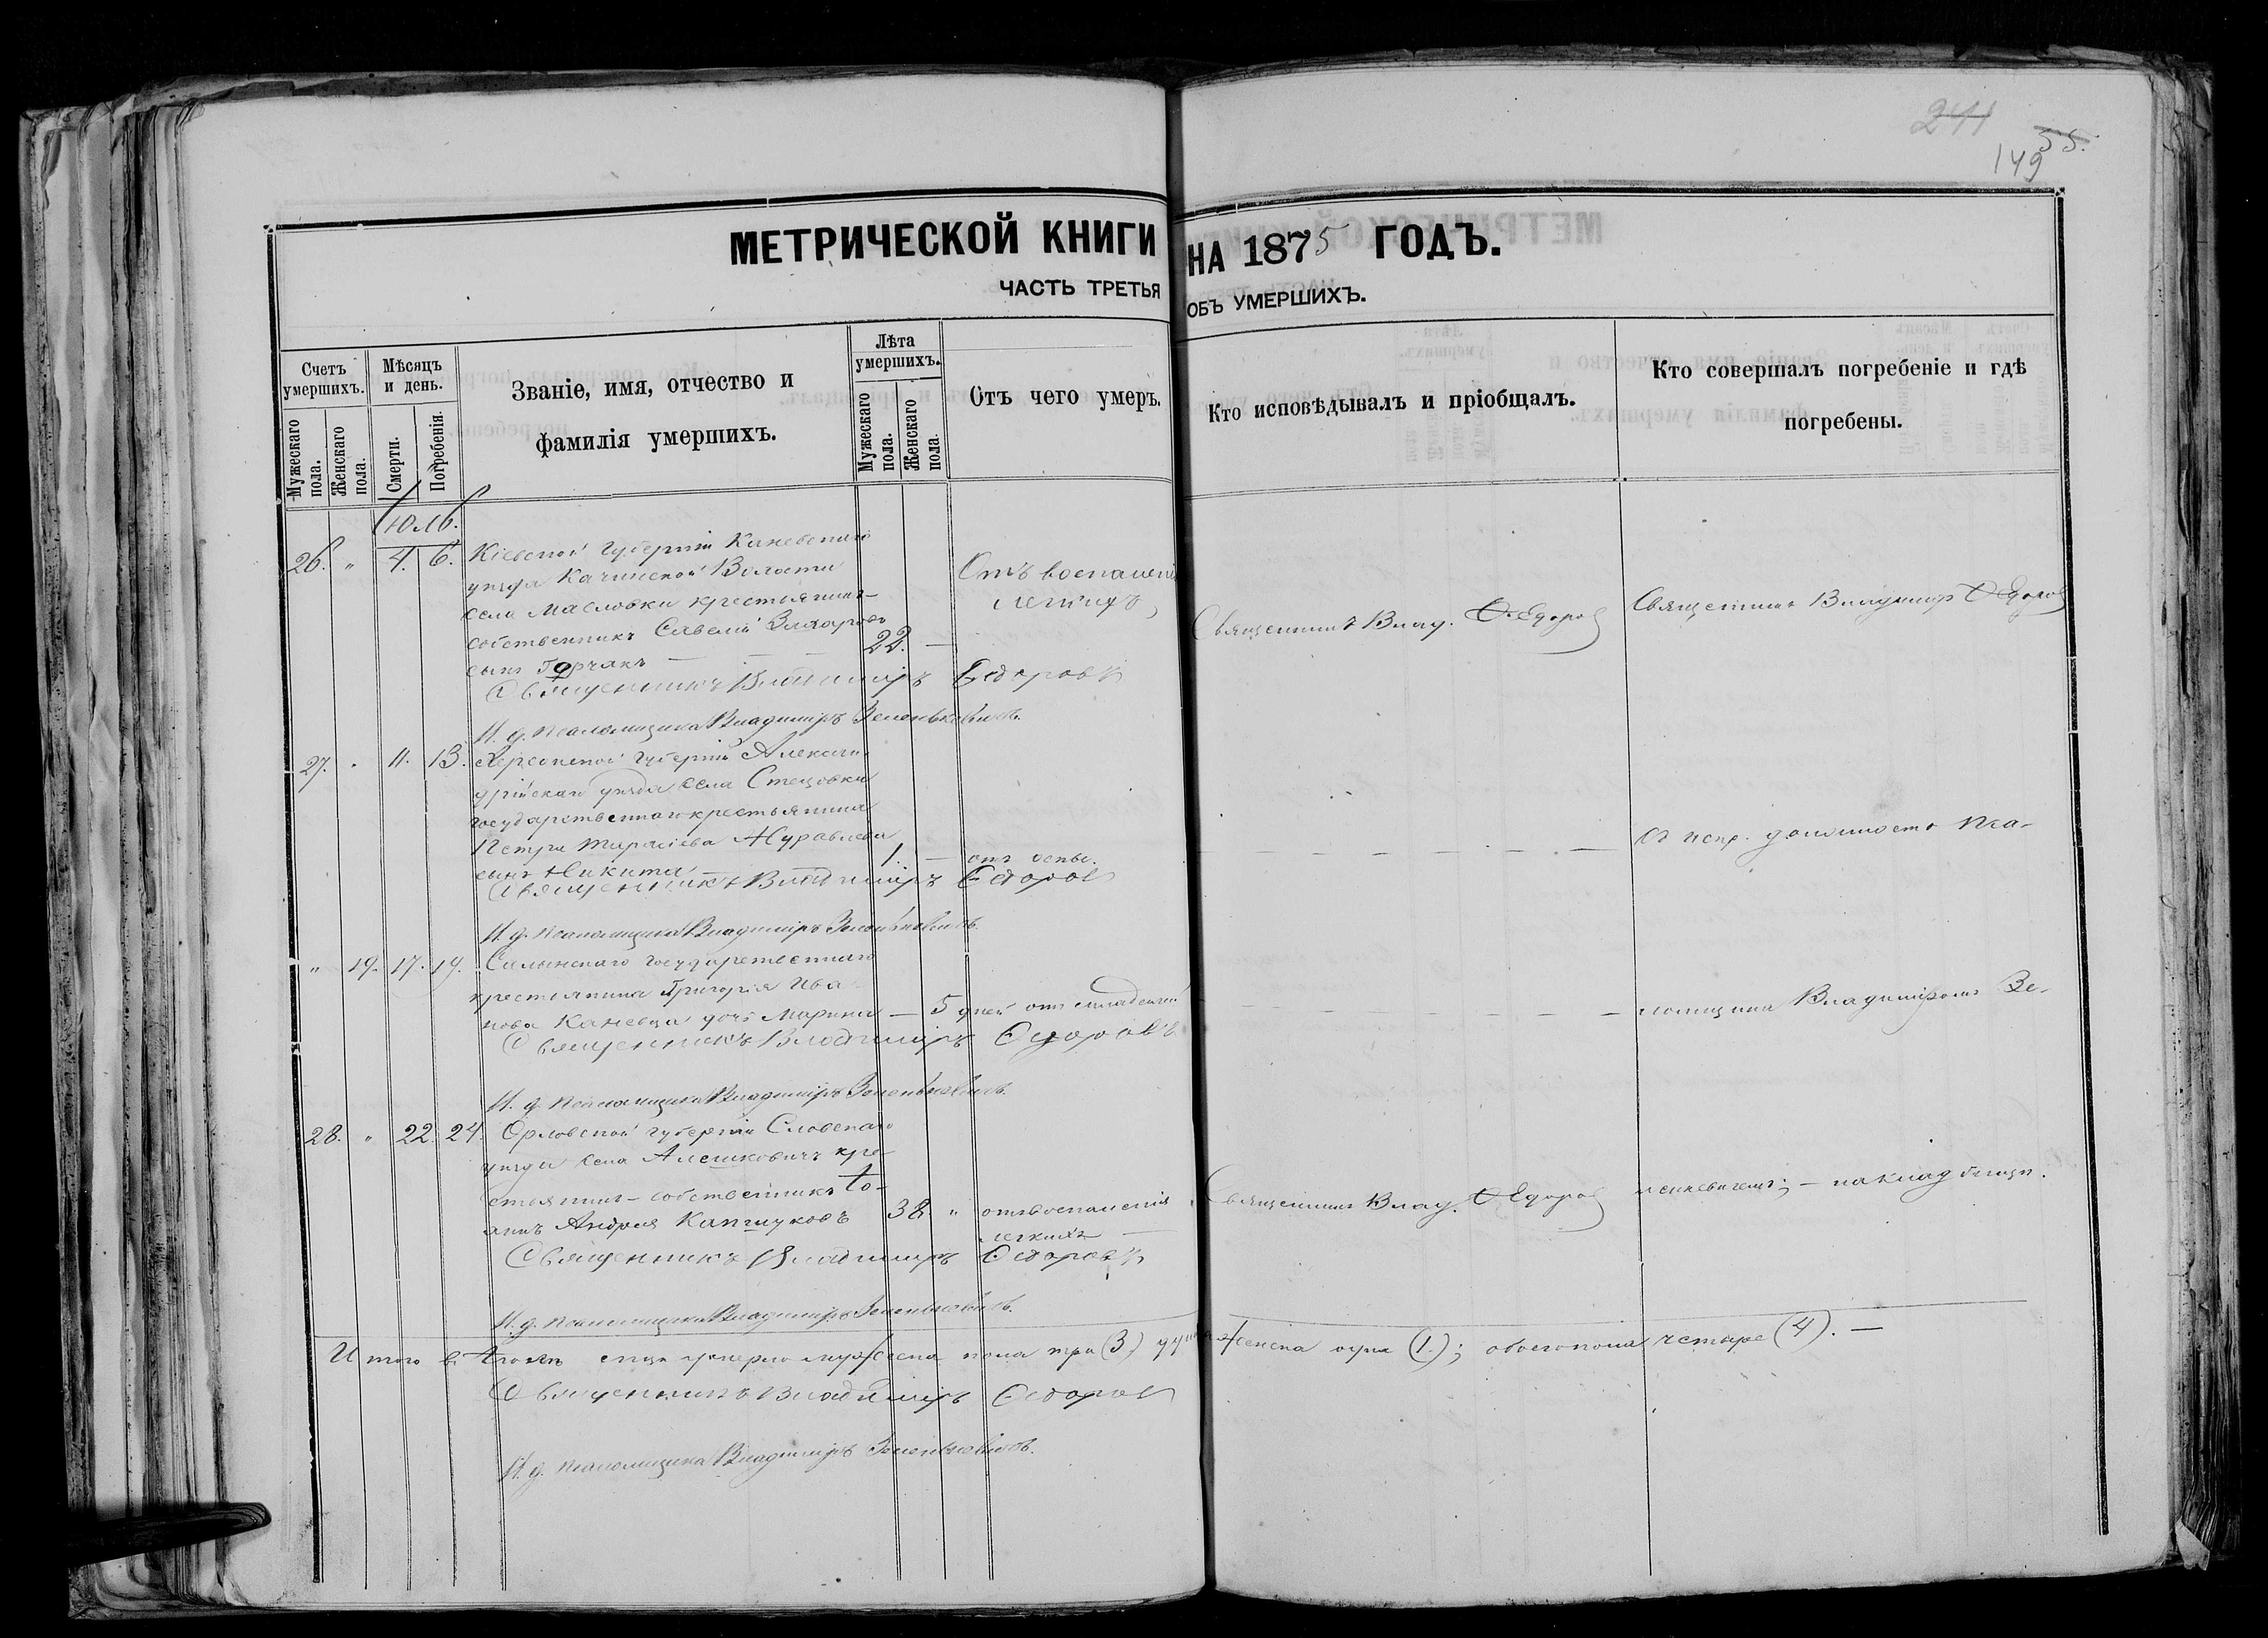 241
55.
149
МЕТРИЧЕСКОЙ КНИГИ НА 1875 ГОДЪ.
ЧАСТЬ ТРЕТЬЯ ОБЪ УМЕРШИХЪ.
Счетъ умершихъ.
Мужескаго пола.
Женскаго пола.
Мѣсяцъ и день.
Смерти.
Погребенія.
Званіе, имя, отчество и
фамилія умершихъ.
Лѣта умершихъ.
Мужескаго пола.
Женскаго пола.
Отъ чего умеръ.
Кто исповѣдывалъ и пріобщалъ.
Кто совершалъ погребеніе и гдѣ
погребены.
Юль.
26. " 4. 6. Кіевской губерніи Каневскаго
уѣзда Качинской Волости
села Масловки крестьянинъ-
собственникъ Савелій Захаровъ
сынъ Горчакъ — 22. —
Отъ воспаленія
легкихъ
Священникъ Влад. Ѳедоровъ
Священникъ Владиміръ Ѳедоровъ
Священникъ Владиміръ Ѳедоровъ
И. д. псаломщика Владиміръ Зеленькевичъ.
27. " 11. 13. Херсонской губерніи Алексан-
дрійскаго уѣзда села Стецовки
государственнаго крестьянина
Петра Тарасіева Журавлева
сынъ Никита 1. — отъ оспы.
съ испр. должность пса-
Священникъ Владиміръ Ѳедоровъ
И. д. псаломщика Владиміръ Зеленькевичъ.
" 19. 17. 19. государственнаго
крестьянина Григорія Ива-
нова Каневца дочь Марина — 5 дней отъ младенчей
ломщика Владиміромъ Зе-
Священникъ Владиміръ Ѳедоровъ
И. д. псаломщика Владиміръ Зеленькевичъ.
28. " 22. 24. Орловской губерніи Сѣвскаго
уѣзда села Алешковичъ кре-
стьянинъ-собственникъ Іо-
аннъ Андрея Капшуковъ 38. " отъ воспаленія
легкихъ
Священникъ Влад. Ѳедоровъ
ленькевичемъ; — на кладбищѣ.
Священникъ Владиміръ Ѳедоровъ
И. д. псаломщика Владиміръ Зеленькевичъ.
Итого въ Іюлѣ умерло мужеска пола три (3) душъ женска одна (1); обоего пола четыре (4). —
Священникъ Владиміръ Ѳедоровъ
И. д. псаломщика Владиміръ Зеленькевичъ.